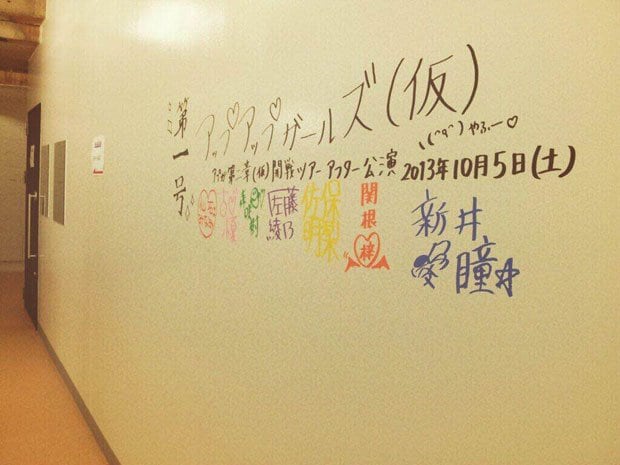 第一号。
アップアップガールズ(仮)
(^q^)やふー♡
アプガ第二章(仮)開戦ツアーアフター公演 2013年10月5日(土)
佐藤綾乃
佐保明梨
関根梓
新井愛瞳